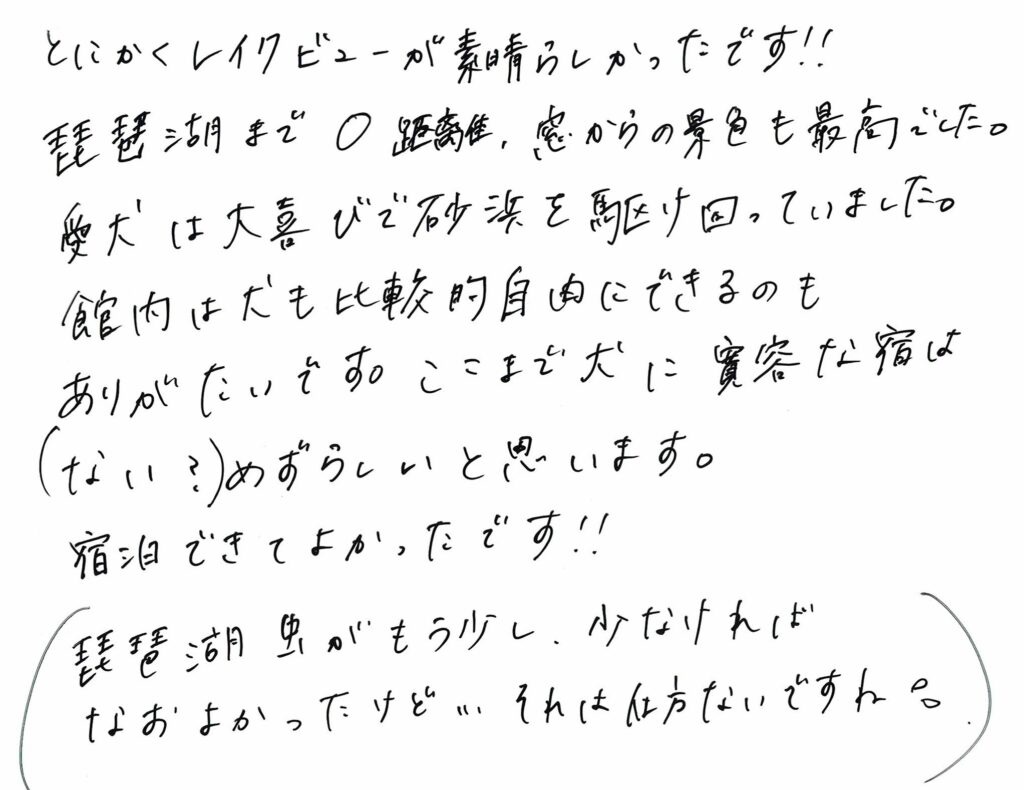 とにかくレイクビューが素晴らしかったです!!
琵琶湖まで0距離、窓からの景色も最高でした。
愛犬は大喜びで砂浜を駆け回っていました。
館内は犬も比較的自由にできるのも
ありがたいです。ここまで犬に寛容な宿は
(ない?)めずらしいと思います。
宿泊できてよかったです!!
(琵琶湖虫がもう少し、少なければ
なおよかったけど… それは仕方ないですね。)